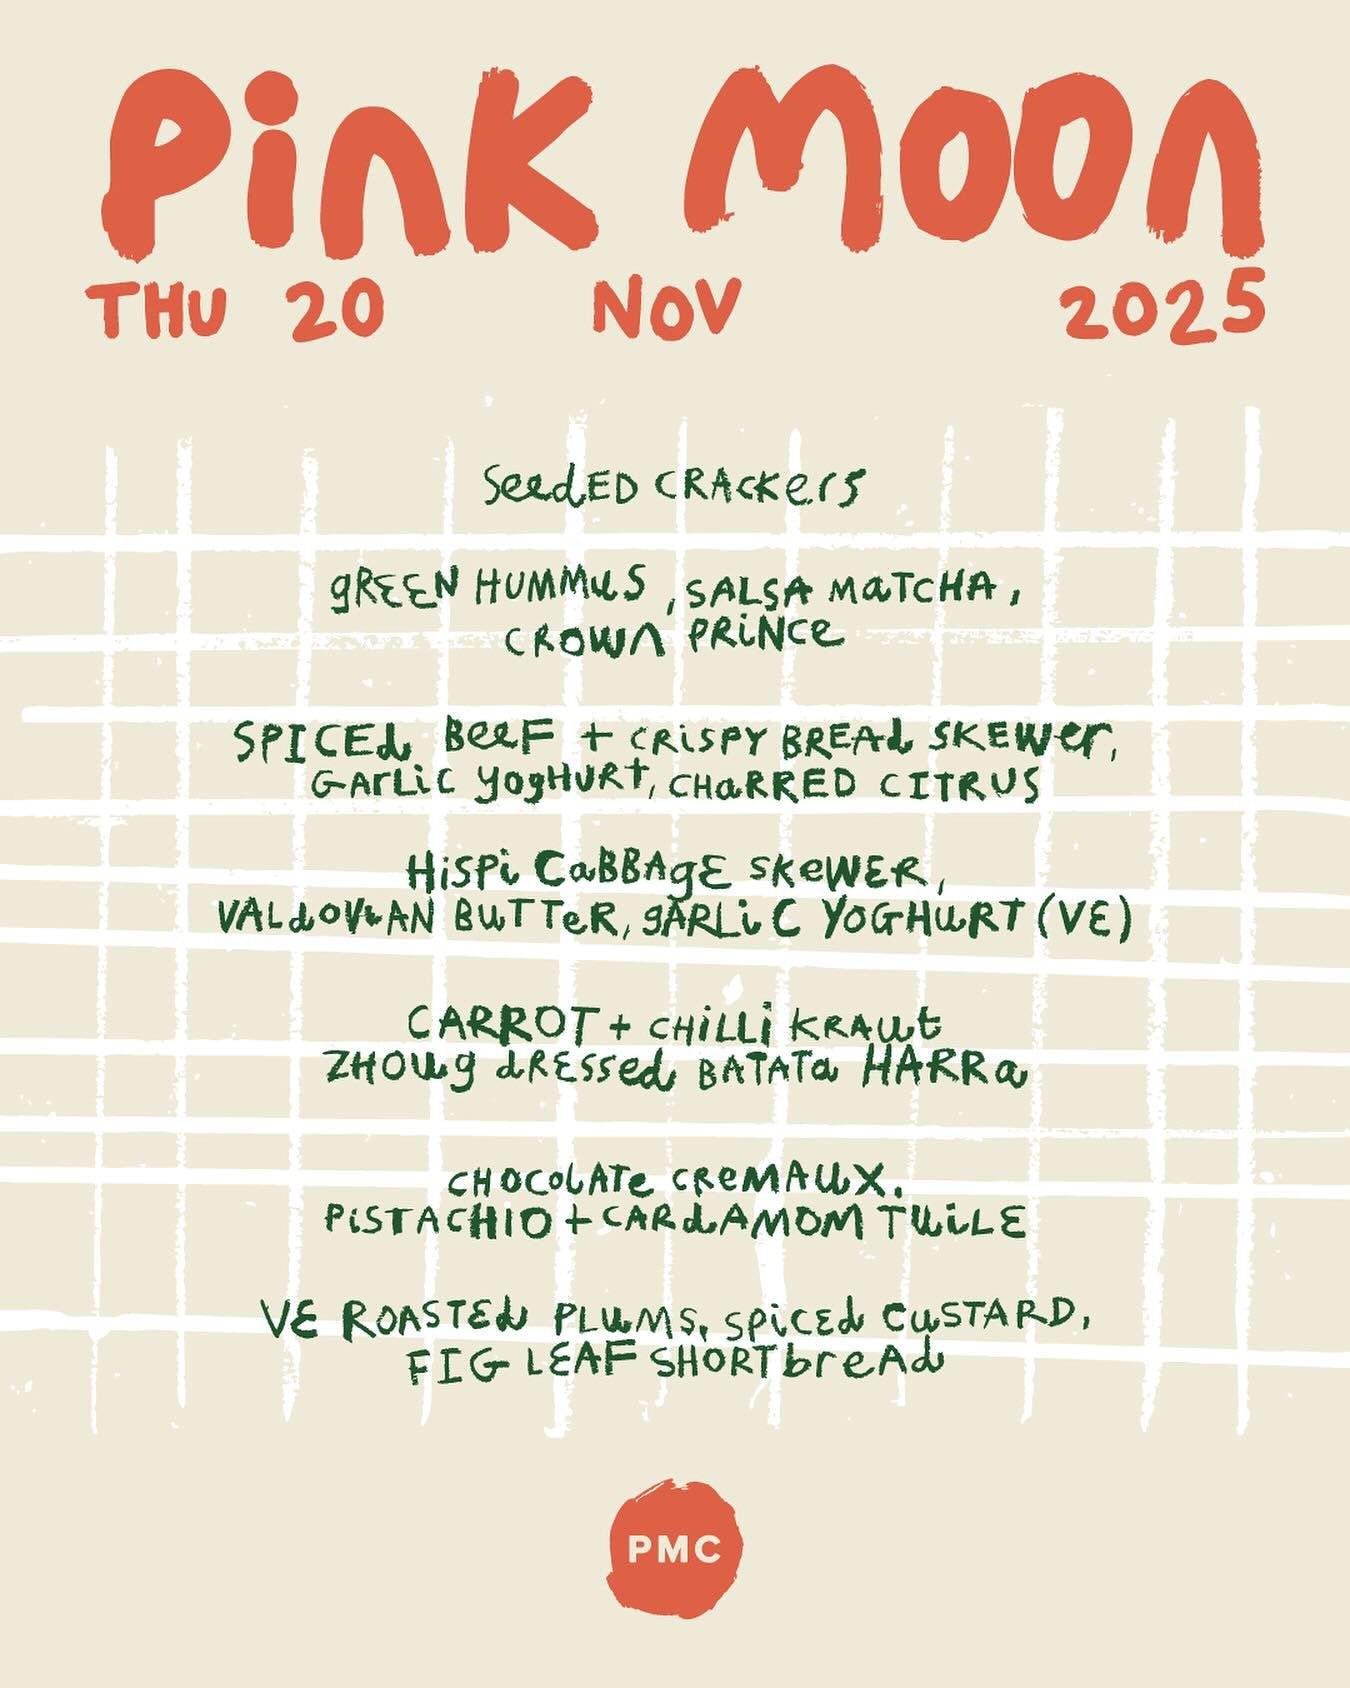 Pink Moon
THU 20 NOV 2025
SeedED CRACKers
gREEN HUMMuS, SALSA MaTCHA,
CROWn PRiNCe
SPICEd BeeF + CRiSPY BREAd SKEWer,
GArLiC yogHURt, CHaRRED CITRUS
HiSPi CaBBAgE SKeWER,
VALdOVIAN BuTTeR, gARLiC YOGHuRT (VE)
CARROT + CHiLLi KRAut
ZHOug dRESsed BATATa HARRa
CHOCOLATe CReMAUX.
PiSTACHIO + CARdAMOM TUiLE
VE ROASTEd PLuMS, SPiCEd CuSTARD,
FIG LEAF SHORTbreAd
PMC